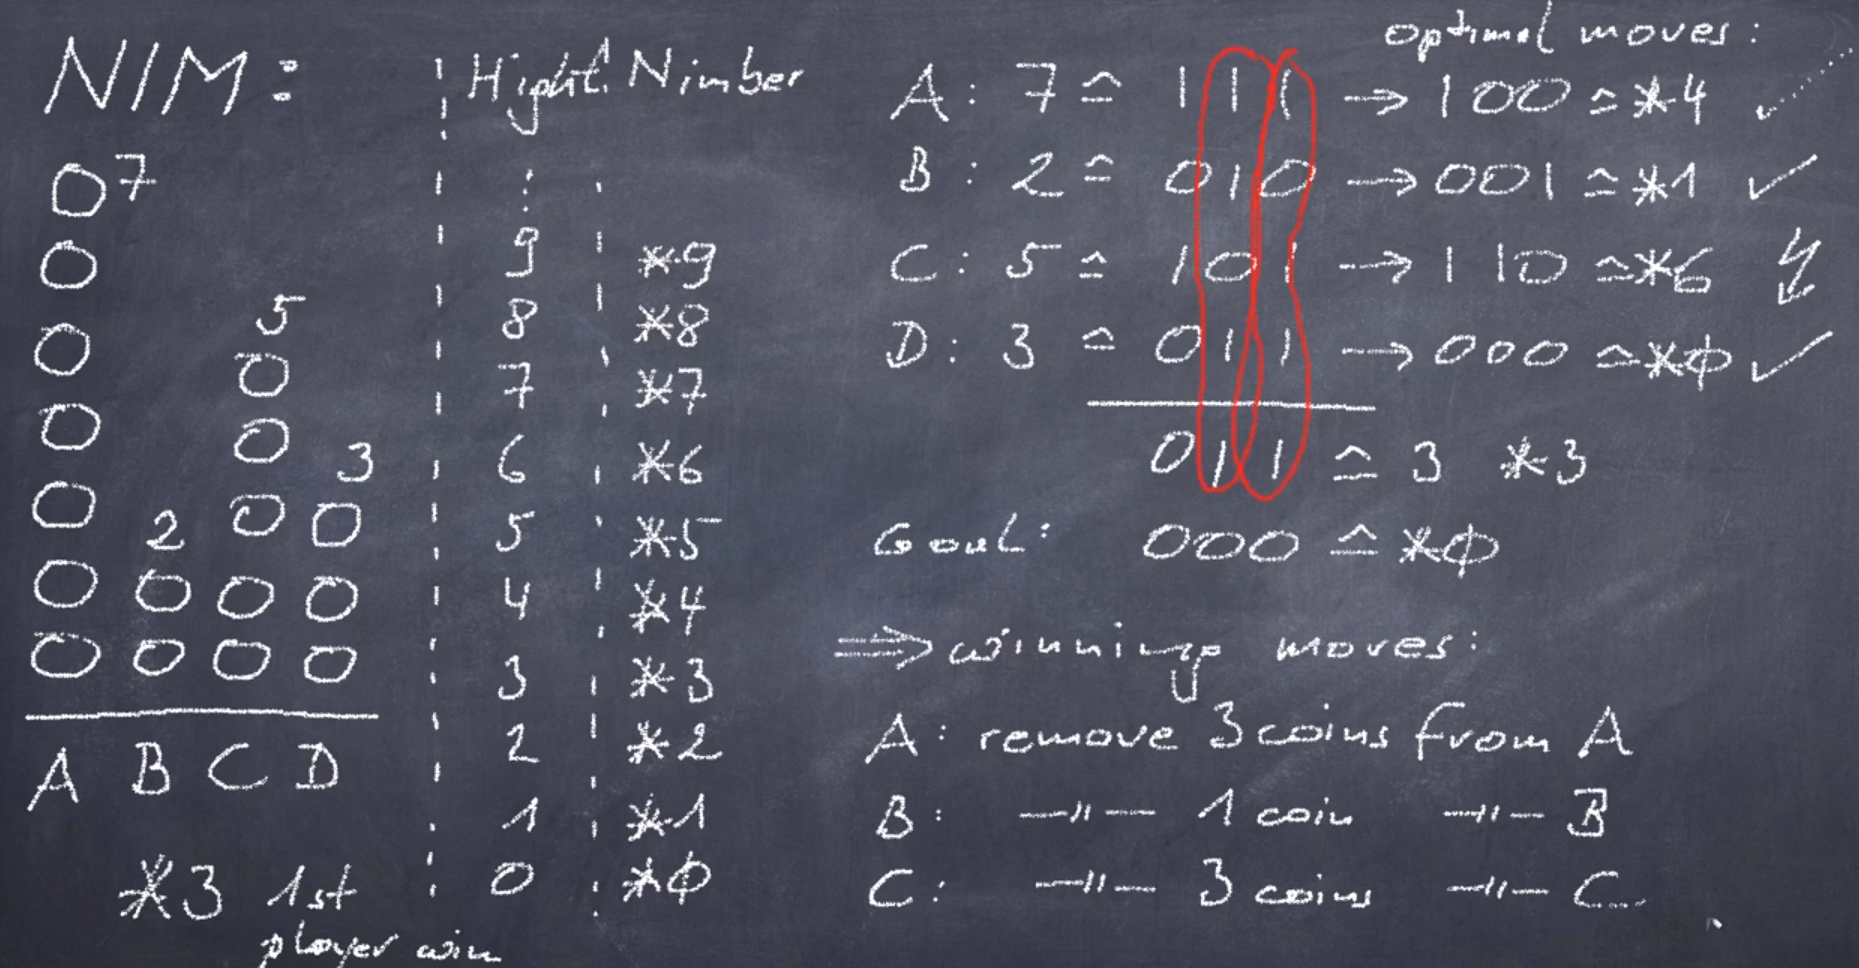 NIM:
07
0
0 5
0 0
0 0 3
0 2 0 0
0 0 0 0
0 0 0 0
A B C D
*3 1st
player win
Hight Nimber
⋮
9 *9
8 *8
7 *7
6 *6
5 *5
4 *4
3 *3
2 *2
1 *1
0 *0
optimal moves:
A: 7 ≙ 111 → 100 ≙ *4 ✓
B: 2 ≙ 010 → 001 ≙ *1 ✓
C: 5 ≙ 101 → 110 ≙ *6 ↯
D: 3 ≙ 011 → 000 ≙ *0 ✓
011 ≙ 3 *3
Goal: 000 ≙ *0
⇒ winning moves:
A: remove 3 coins from A
B: —"— 1 coin —"— B
C: —"— 3 coins —"— C